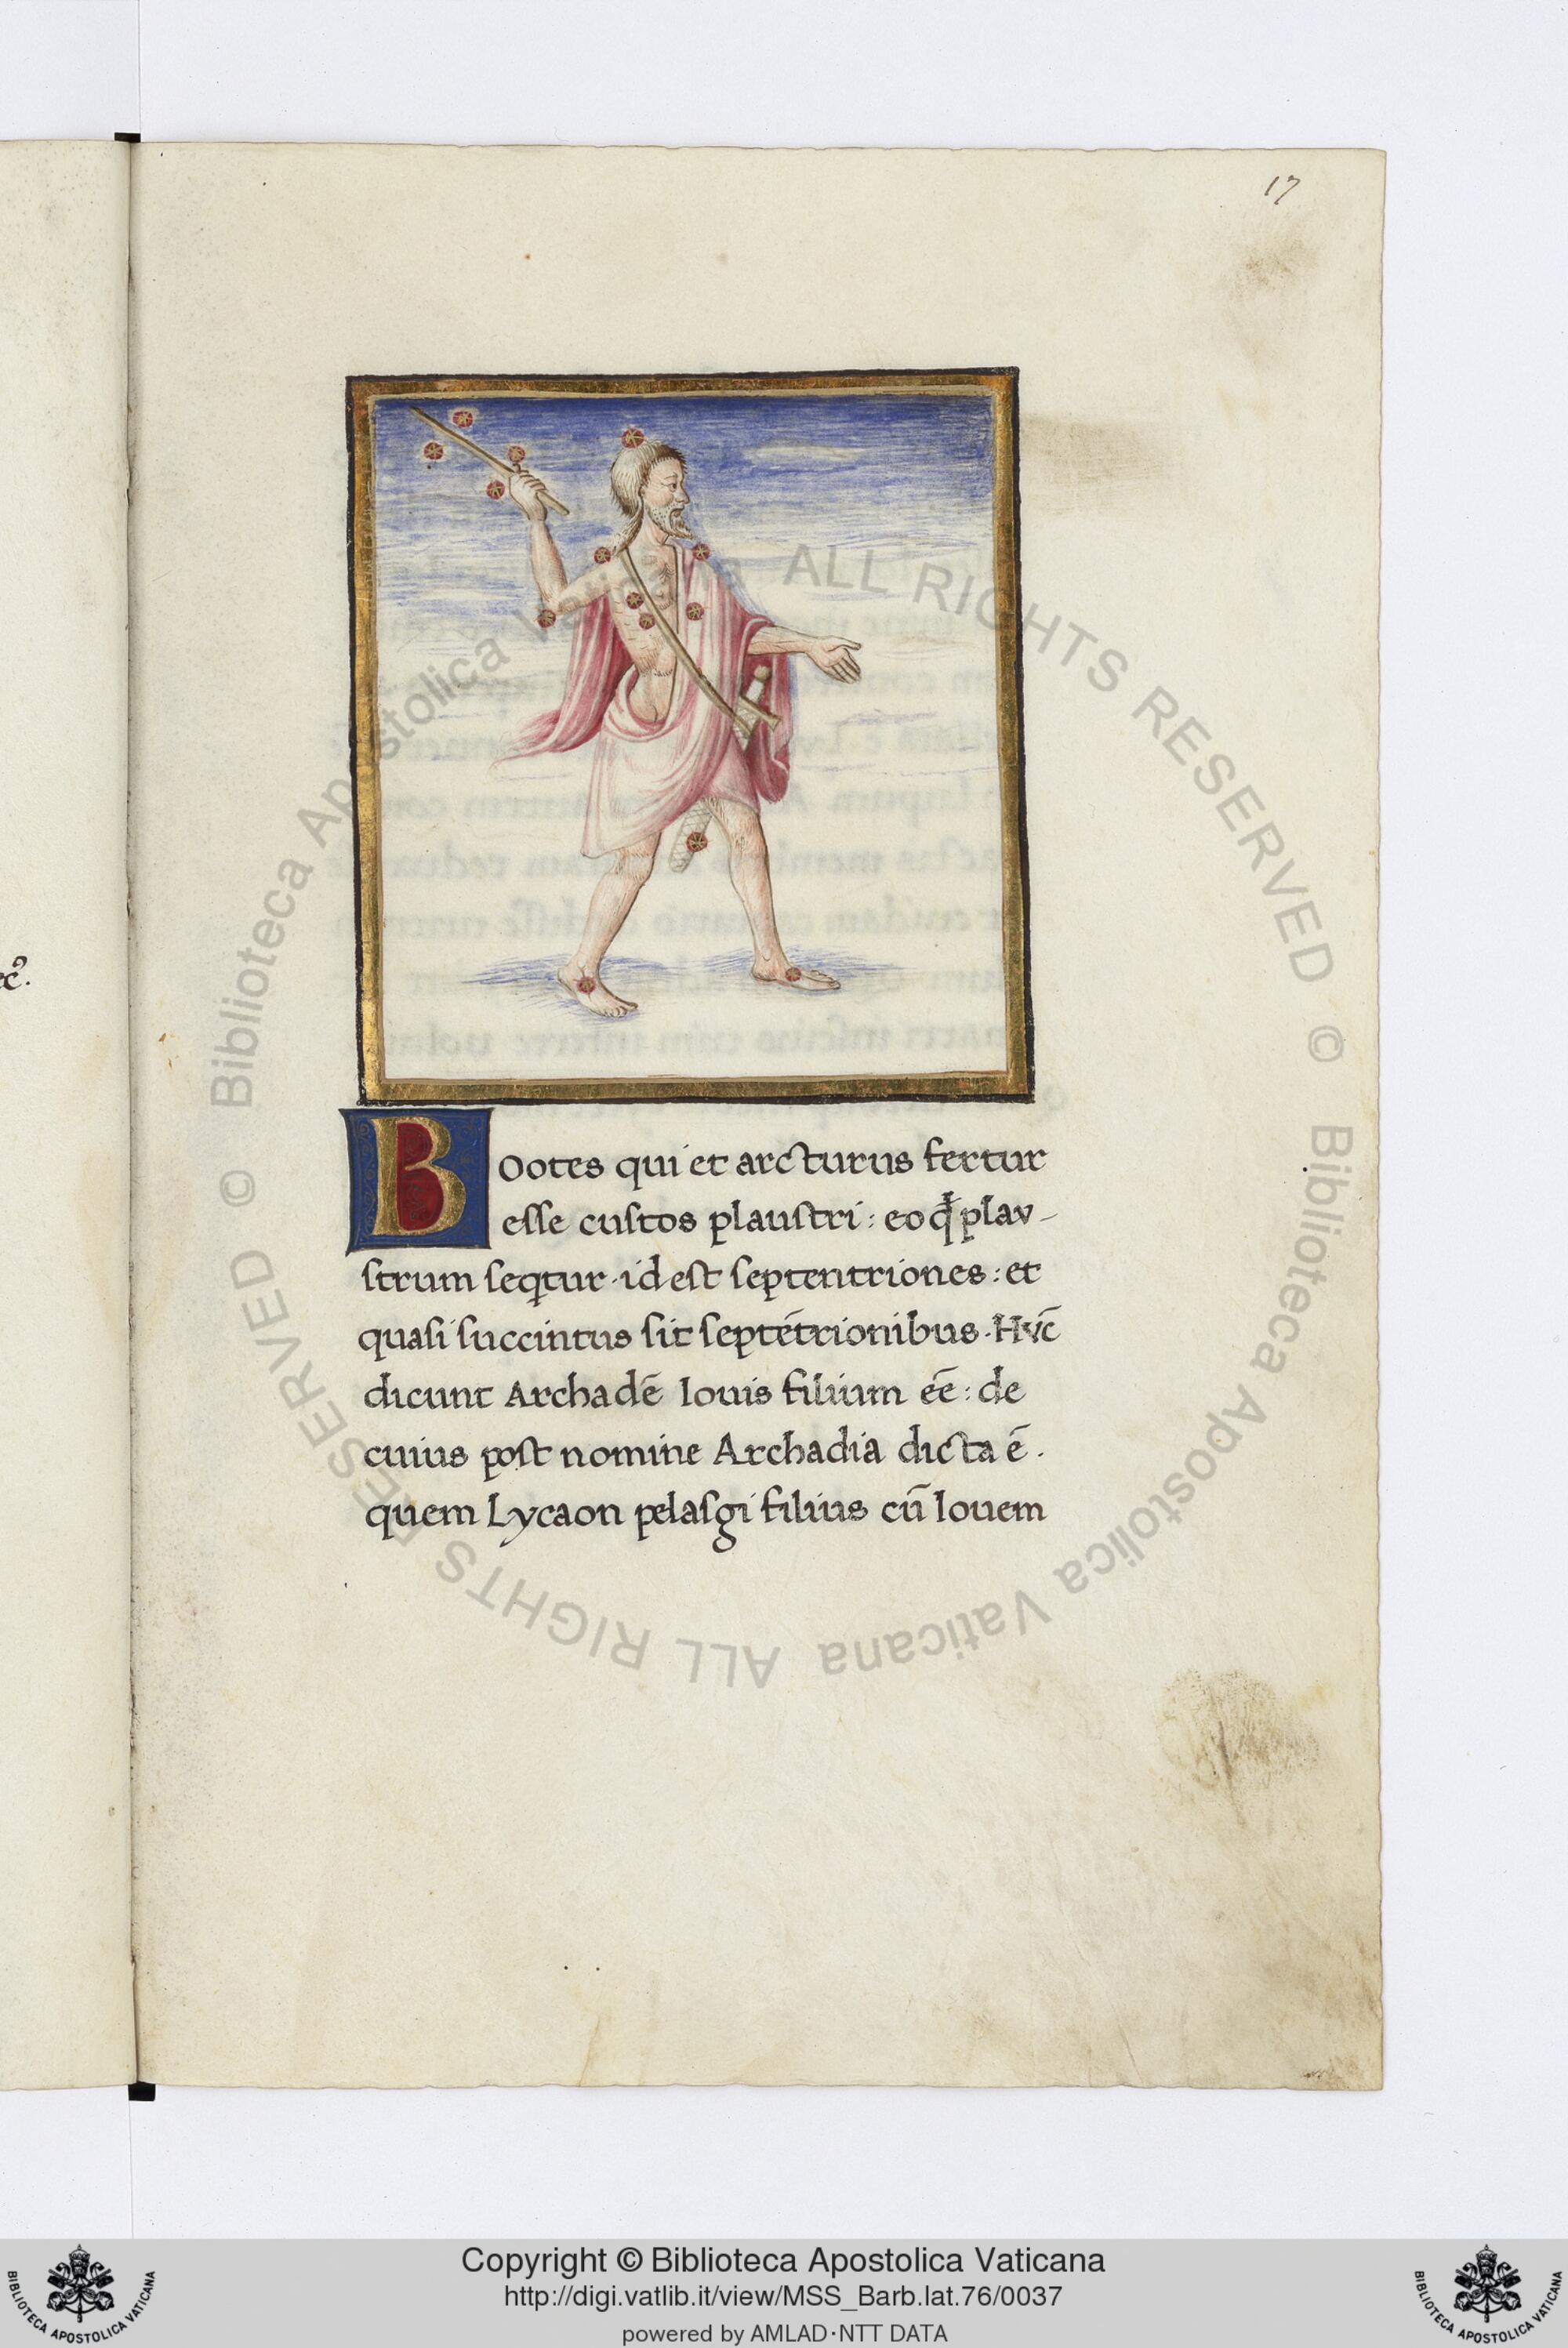 17
ec⁹.
Bootes qui et arcturus fertur
eſſe cuſtos plauſtri : eo q̄ plav-
ſtrum ſeqtur · id eſt ſeptentriones : et
quaſi ſuccintus ſit ſeptētrionibus · Hvc̄
dicunt Archadē Iouis filium eē : de
cuius poſt nomine Archadia dicta ē .
quem Lycaon pelaſgi filius cū Iouem
© Biblioteca Apostolica Vaticana ALL RIGHTS RESERVED © Biblioteca Apostolica Vaticana ALL RIGHTS RESERVED
Copyright © Biblioteca Apostolica Vaticana
http://digi.vatlib.it/view/MSS_Barb.lat.76/0037
powered by AMLAD·NTT DATA
BIBLIOTECA APOSTOLICA VATICANA
BIBLIOTECA APOSTOLICA VATICANA